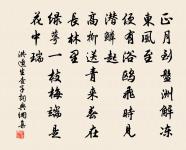 正月到盤洲解凍
東風至
便有浴鷗飛時見
潛鱗起
高柳送青來春在
長林里
綠萼一枝梅端是
花中瑞
洪適生查子詞典網書